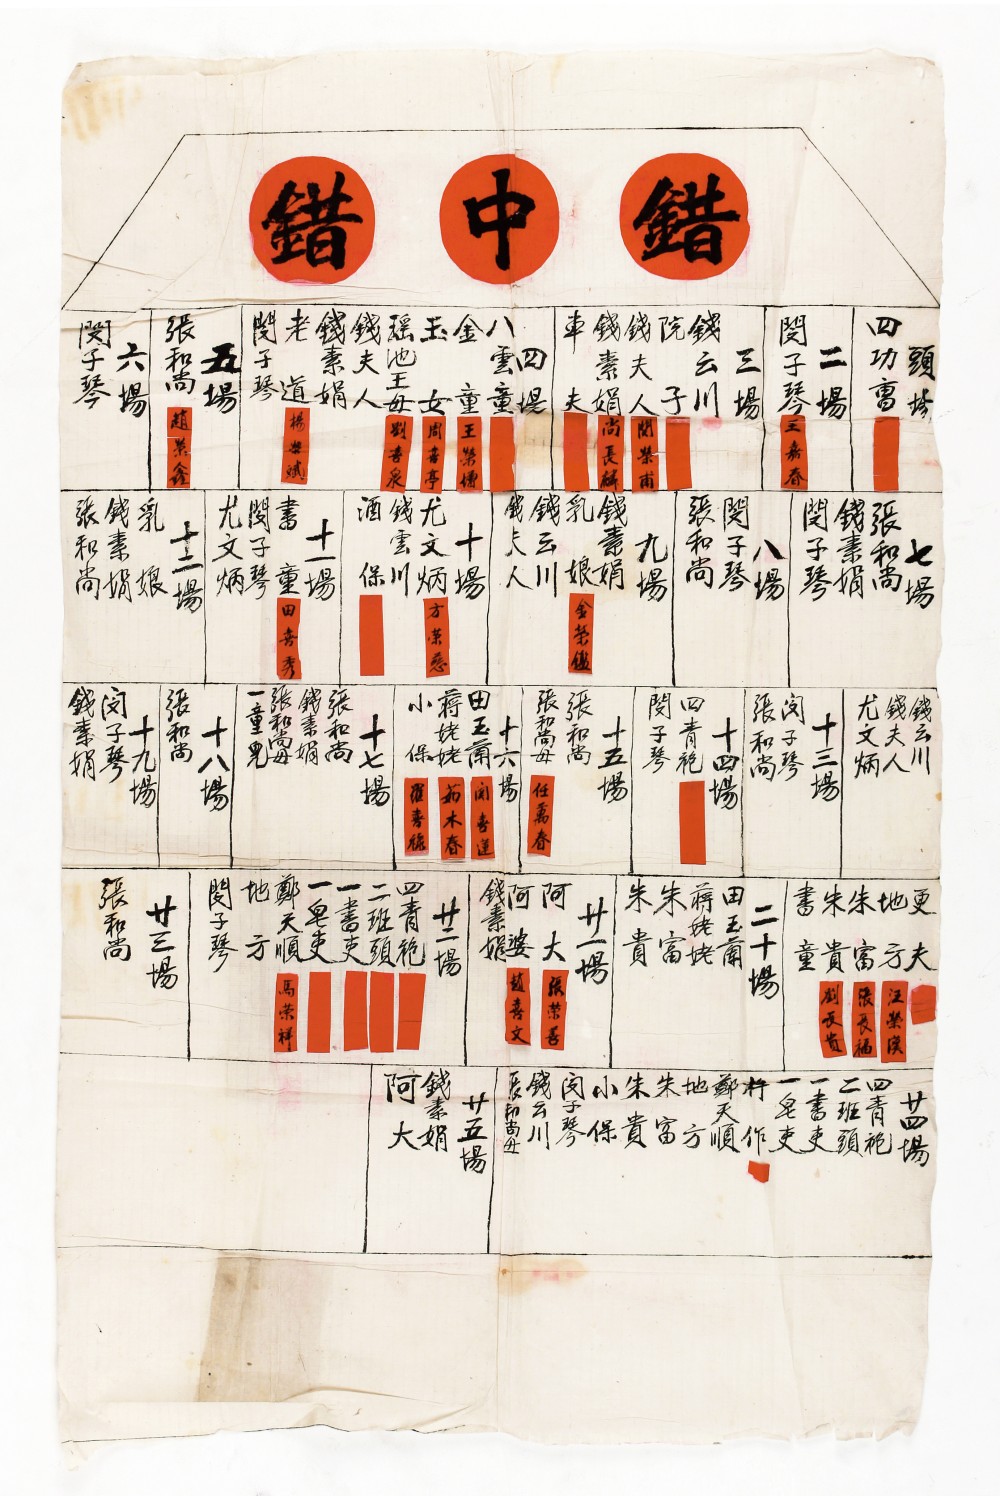 錯中錯
頭場
四功曹
二場
閔子琴
王喬春
三場
錢云川
院子
錢夫人
閔榮甫
錢素娟
尚長麟
車夫
四場
八雲童
金童
王榮增
玉女
周喜亭
瑶池王母
劉喜泉
錢夫人
錢素娟
老道
楊榮斌
閔子琴
五場
張和尚
趙榮鑫
六場
閔子琴
七場
張和尚
錢素娟
閔子琴
八場
閔子琴
張和尚
九場
錢素娟
乳娘
金榮鑑
錢云川
錢夫人
十場
尤文炳
方榮慈
錢雲川
酒保
十一場
書童
田喜秀
閔子琴
尤文炳
十二場
乳娘
錢素娟
張和尚
錢云川
錢夫人
尤文炳
十三場
閔子琴
張和尚
十四場
四青袍
閔子琴
十五場
張和尚
張和尚母
任萬春
十六場
田玉蘭
蔣姥姥
茹木春
小保
羅喜祿
十七場
張和尚
錢素娟
張和尚母
一童兒
十八場
張和尚
十九場
閔子琴
錢素娟
更夫
地方
汪榮漢
朱富
張長福
朱貴
劉長貴
書童
二十場
田玉蘭
蔣姥姥
朱富
朱貴
廿一場
阿大
張榮善
阿婆
趙喜文
錢素娟
廿二場
四青袍
二班頭
一書吏
一皂吏
鄭天順
馬榮祥
地方
閔子琴
廿三場
張和尚
廿四場
四青袍
二班頭
一書吏
一皂吏
忤作
鄭天順
地方
朱富
朱貴
小保
閔子琴
錢云川
張和尚母
廿五場
錢素娟
阿大